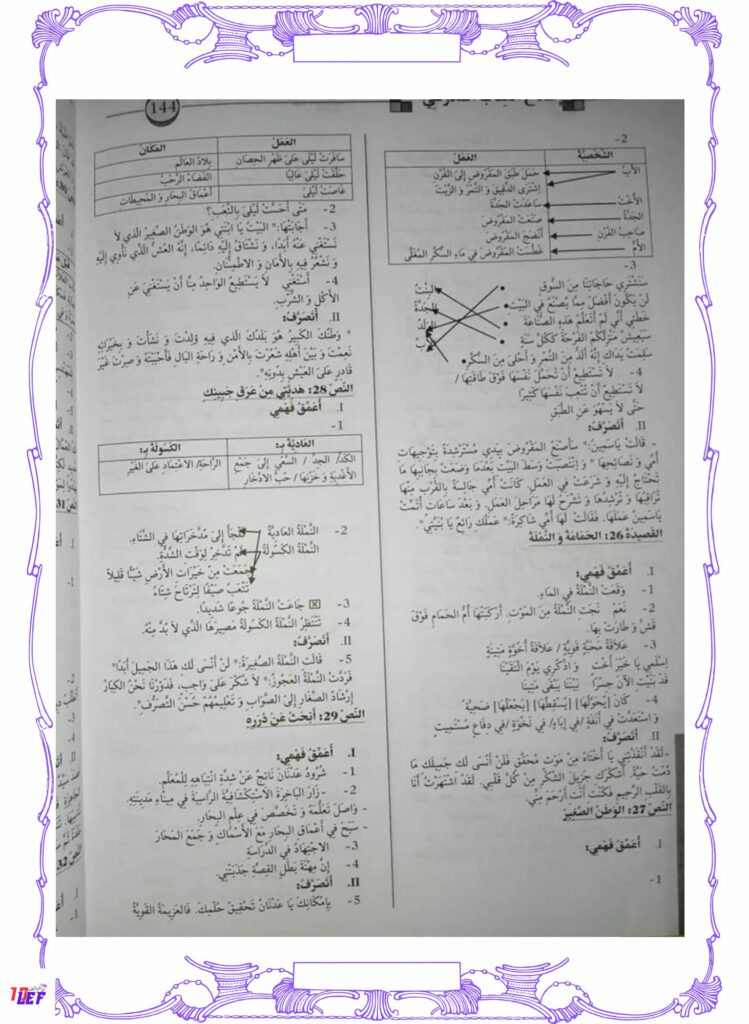 144
2-
الشَّخْصِيَّةُ العَمَلُ
الأَبُ حَمَلَ طَبَقَ المَقْرُوضِ إِلَى الفُرْنِ
اِشْتَرَى الدَّقِيقَ وَ التَّمْرَ وَ الزَّيْتَ
الأُخْتُ سَاعَدَتْ الجَدَّةَ
الجَدَّةُ صَنَعَتْ المَقْرُوضَ
صَاحِبُ الفُرْنِ أَنْضَجَ المَقْرُوضَ
الأُمُّ غَطَّسَتْ المَقْرُوضَ فِي مَاءِ السُّكَّرِ المُغَلَّى
3-
سَنَشْتَرِي حَاجَاتِنَا مِنَ السُّوقِ
لَنْ يَكُونَ أَفْضَلَ مِمَّا يُصْنَعُ فِي البَيْتِ
خَطَئِي أَنِّي لَمْ أَتَعَلَّمْ هَذِهِ الصِّنَاعَةَ
سَيَعِيشُ مَنْزِلُكُمْ الفَرْحَةَ كَكُلِّ سَنَةٍ
سَلِمَتْ يَدَاكِ إِنَّهُ أَلَذُّ مِنَ التَّمْرِ وَ أَحْلَى مِنَ السُّكَّرِ
البِنْتُ
الجَدَّةُ
4- لَا تَسْتَطِيعُ أَنْ تُحَمِّلَ نَفْسَهَا فَوْقَ طَاقَتِهَا /
لَا تَسْتَطِيعُ أَنْ تُتْعِبَ نَفْسَهَا كَثِيرًا
حَتَّى لَا يَسْهُوَ عَنِ الطَّبَقِ
II. أَتَصَرَّفُ:
- قَالَتْ يَاسَمِينُ:" سَأَصْنَعُ المَقْرُوضَ بِيَدِي مُسْتَرْشِدَةً بِتَوْجِيهَاتِ
أُمِّي وَ نَصَائِحِهَا " وَ اِنْتَصَبَتْ وَسَطَ البَيْتِ بَعْدَمَا وَضَعَتْ بِجَانِبِهَا مَا
تَحْتَاجُ إِلَيْهِ وَ شَرَعَتْ فِي العَمَلِ. كَانَتْ أُمِّي جَالِسَةً بِالقُرْبِ مِنْهَا
تُرَاقِبُهَا وَ تُرْشِدُهَا وَ تَشْرَحُ لَهَا مَرَاحِلَ العَمَلِ. وَ بَعْدَ سَاعَاتٍ أَتَمَّتْ
يَاسَمِينُ عَمَلَهَا. فَقَالَتْ لَهَا أُمِّي شَاكِرَةً:" عَمَلُكِ رَائِعٌ يَا بُنَيَّتِي".
القَصِيدَة 26: الحَمَامَةُ وَ النَّمْلَةُ
I. أُعَمِّقُ فَهْمِي:
1- وَقَعَتْ النَّمْلَةُ فِي المَاءِ.
2- نَعَمْ نَجَتِ النَّمْلَةُ مِنَ المَوْتِ. أَرْكَبَتْهَا أُمُّ الحَمَامِ فَوْقَ
قَشٍّ وَ طَارَتْ بِهَا.
3- عَلَاقَةُ مَحَبَّةٍ قَوِيَّةٍ / عَلَاقَةُ أُخُوَّةٍ مَتِينَةٍ
اِسْلَمِي يَا خَيْرَ أُخْتٍ وَ اذْكُرِي يَوْمَ التَقَيْنَا
قَدْ بَنَيْتِ الآنَ جِسْرًا بَيْنَنَا يَبْقَى مَتِينَا
4- كَانَ [يُحَوِّلُهَا] [يُسْقِطُهَا] [يَجْعَلُهَا] ضَحِيَّةً
وَ اسْتَعَدَّتْ فِي أَنَفَةٍ /فِي إِبَاءٍ/ فِي نَخْوَةٍ /فِي دِفَاعٍ مُسْتَمِيتٍ
II. أَتَصَرَّفُ:
-لَقَدْ أَنْقَذْتِنِي يَا أُخْتَاهُ مِنْ مَوْتٍ مُحَقَّقٍ فَلَنْ أَنْسَى لَكِ جَمِيلَكِ مَا
دُمْتُ حَيَّةً. أَشْكُرُكِ جَزِيلَ الشُّكْرِ مِنْ كُلِّ قَلْبِي. لَقَدْ اشْتَهَرْتُ أَنَا
بِالقَلْبِ الرَّحِيمِ فَكُنْتِ أَنْتِ أَرْحَمَ مِنِّي.
النَّصّ 27: الوَطَنُ الصَّغِيرُ
I. أُعَمِّقُ فَهْمِي:
1-
العَمَلُ المَكَانُ
سَافَرَتْ لَيْلَى عَلَى ظَهْرِ الحِصَانِ بِلَادُ العَالَمِ
حَلَّقَتْ لَيْلَى عَالِيًا الفَضَاءُ الرَّحْبُ
غَاصَتْ لَيْلَى أَعْمَاقُ البِحَارِ وَ المُحِيطَاتِ
2- مَتَى أَحَسَّتْ لَيْلَى بِالتَّعَبِ؟
3- أَجَابَتْهَا:" البَيْتُ يَا ابْنَتِي هُوَ الوَطَنُ الصَّغِيرُ الَّذِي لَا
نَسْتَغْنِي عَنْهُ أَبَدًا، وَ نَشْتَاقُ إِلَيْهِ دَائِمًا، إِنَّهُ العُشُّ الَّذِي نَأْوِي إِلَيْهِ
وَ نَشْعُرُ فِيهِ بِالأَمَانِ وَ الاطْمِئْنَانِ.
4- أَسْتَغْنِي لَا يَسْتَطِيعُ الوَاحِدُ مِنَّا أَنْ يَسْتَغْنِيَ عَنِ
الأَكْلِ وَ الشُّرْبِ.
II. أَتَصَرَّفُ:
" وَطَنُكَ الكَبِيرُ هُوَ بَلَدُكَ الَّذِي فِيهِ وُلِدْتَ وَ نَشَأْتَ وَ بِخَيْرَاتِهِ
نَعِمْتَ وَ بَيْنَ أَهْلِهِ شَعُرْتَ بِالأَمْنِ وَ رَاحَةِ البَالِ فَأَحْبَبْتَهُ وَ صِرْتَ غَيْرَ
قَادِرٍ عَلَى العَيْشِ بِدُونِهِ".
النَّصّ 28: هَدِيَّتِي مِنْ عَرَقِ جَبِينِكِ
I. أُعَمِّقُ فَهْمِي
1-
العَادِيَّةُ بِـ: الكَسُولَةُ بِـ:
الكَدّ/ الجِدّ / السَّعْي إِلَى جَمْعِ الرَّاحَةِ/ الاعْتِمَادِ عَلَى الغَيْرِ
الأَغْذِيَةِ وَ خَزْنِهَا / حُبِّ الادِّخَارِ
2- النَّمْلَةُ العَادِيَّةُ تَلْجَأُ إِلَى مُدَّخَرَاتِهَا فِي الشِّتَاءِ.
النَّمْلَةُ الكَسُولَةُ لَمْ تَدَّخِرْ لِوَقْتِ الشِّدَّةِ.
جَمَعَتْ مِنْ خَيْرَاتِ الأَرْضِ شَيْئًا قَلِيلًا
تَتْعَبُ صَيْفًا لِتَرْتَاحَ شِتَاءً
3- ☒ جَاعَتْ النَّمْلَةُ جُوعًا شَدِيدًا.
4- تَنْتَظِرُ النَّمْلَةُ الكَسُولَةُ مَصِيرَهَا الَّذِي لَا بُدَّ مِنْهُ.
II. أَتَصَرَّفُ:
5- قَالَتْ النَّمْلَةُ الصَّغِيرَةُ:" لَنْ أَنْسَى لَكِ هَذَا الجَمِيلَ أَبَدًا"
فَرَدَّتْ النَّمْلَةُ العَجُوزُ:" لَا شُكْرَ عَلَى وَاجِبٍ، فَدَوْرُنَا نَحْنُ الكِبَارُ
إِرْشَادُ الصِّغَارِ إِلَى الصَّوَابِ وَ تَعْلِيمُهُمْ حُسْنَ التَّصَرُّفِ".
النَّصّ 29: أَبْحَثُ عَنْ دُرَرِهِ
I. أُعَمِّقُ فَهْمِي:
1- شُرُودُ عَدْنَانَ نَاتِجٌ عَنْ شِدَّةِ انْتِبَاهِهِ لِلْمُعَلِّمِ.
2- - زَارَ البَاخِرَةَ الاسْتِكْشَافِيَّةَ الرَّاسِيَةَ فِي مِينَاءِ مَدِينَتِهِ.
- وَاصَلَ تَعَلُّمَهُ وَ تَخَصَّصَ فِي عِلْمِ البِحَارِ.
- سَبَحَ فِي أَعْمَاقِ البِحَارِ مَعَ الأَسْمَاكِ وَ جَمَعَ المَحَارَ
3- الاجْتِهَادُ فِي الدِّرَاسَةِ
4- إِنَّ مِهْنَةَ بَطَلِ القِصَّةِ جَذَبَتْنِي.
II. أَتَصَرَّفُ:
5- بِإِمْكَانِكَ يَا عَدْنَانُ تَحْقِيقُ حُلْمِكَ. فَالعَزِيمَةُ القَوِيَّةُ